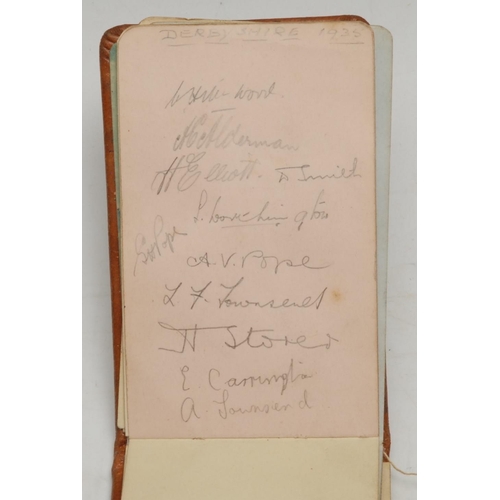 DERBYSHIRE 1935
A E Alderman
H Elliott. D Smith
Geo Pope
A. V. Pope
L F. Townsend
H Storer
E. Carrington
A. Townsend